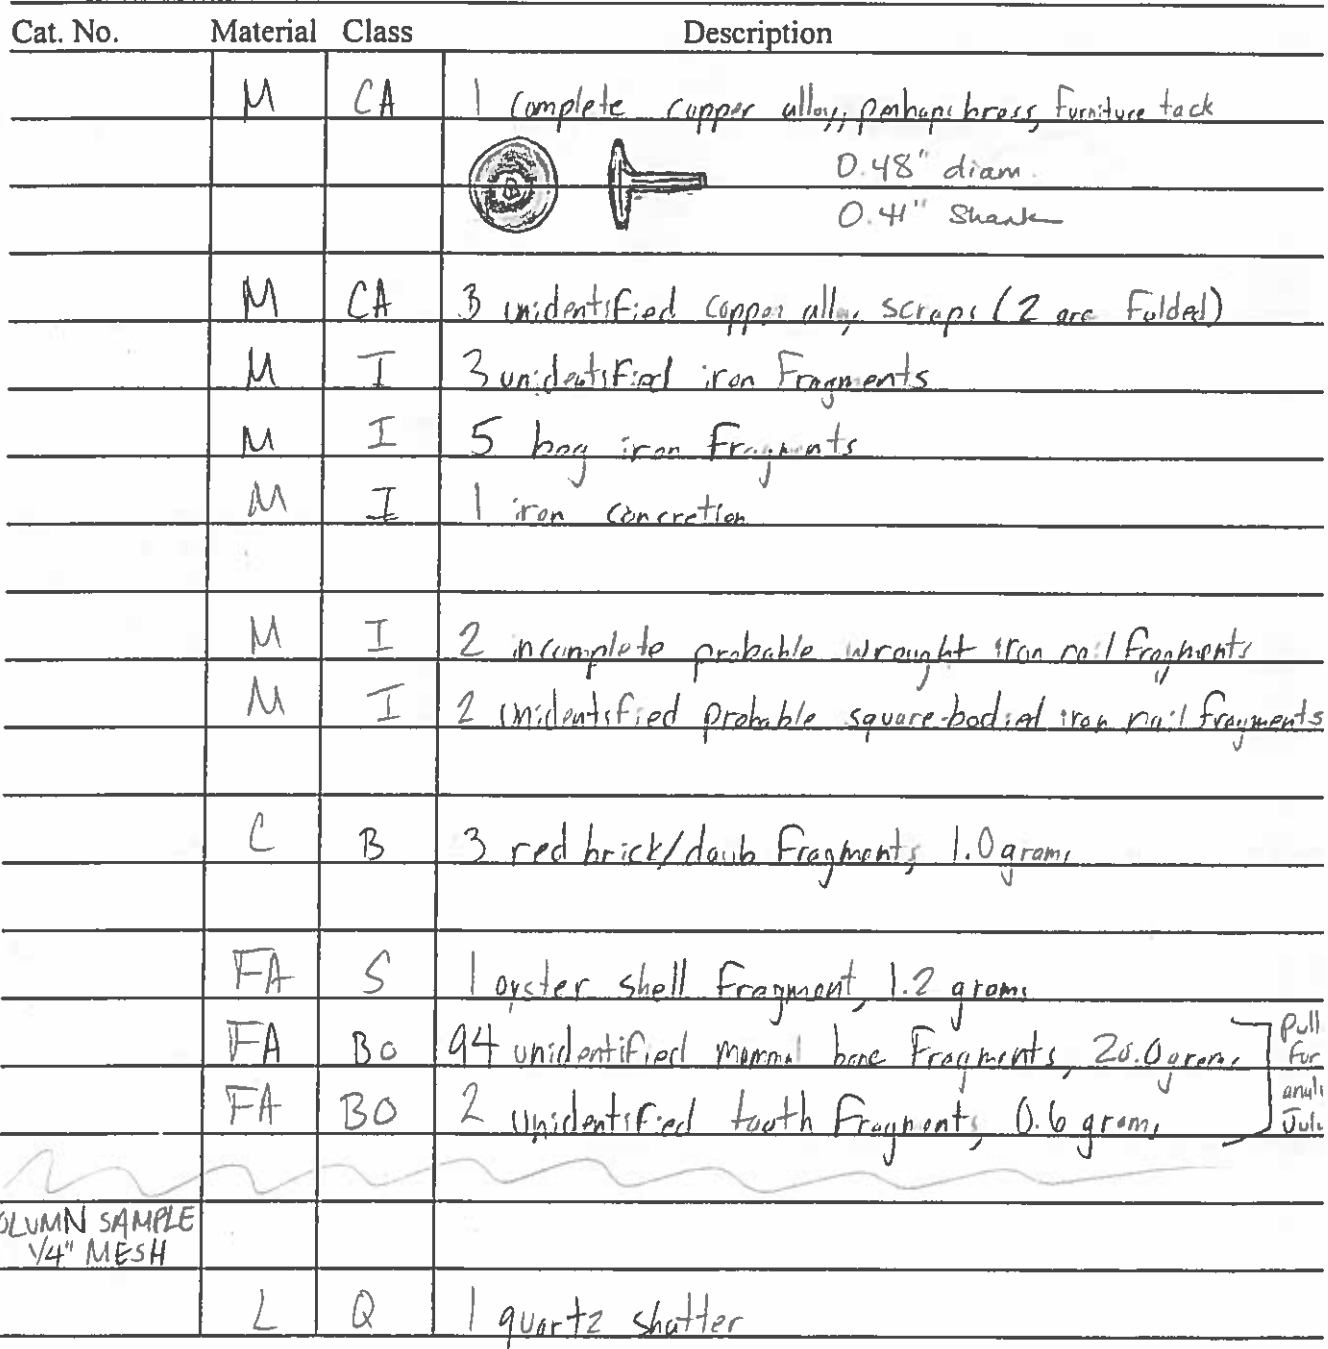 Cat. No. Material Class Description
M CA 1 complete copper alloy, perhaps brass, furniture tack
0.48" diam.
0.41" Shank
M CA 3 unidentified copper alloy scraps (2 are folded)
M I 3 unidentified iron fragments
M I 5 bog iron fragments
M I 1 iron concretion
M I 2 incomplete probable wrought iron nail fragments
M I 2 unidentified probable square-bodied iron nail fragments
C B 3 red brick/daub fragments, 1.0 grams
FA S 1 oyster shell fragment, 1.2 grams
FA BO 94 unidentified mammal bone fragments, grams
pull
for
FA BO 2 unidentified tooth fragments, 0.6 grams
OLUMN SAMPLE
1/4" MESH
L Q 1 quartz shatter